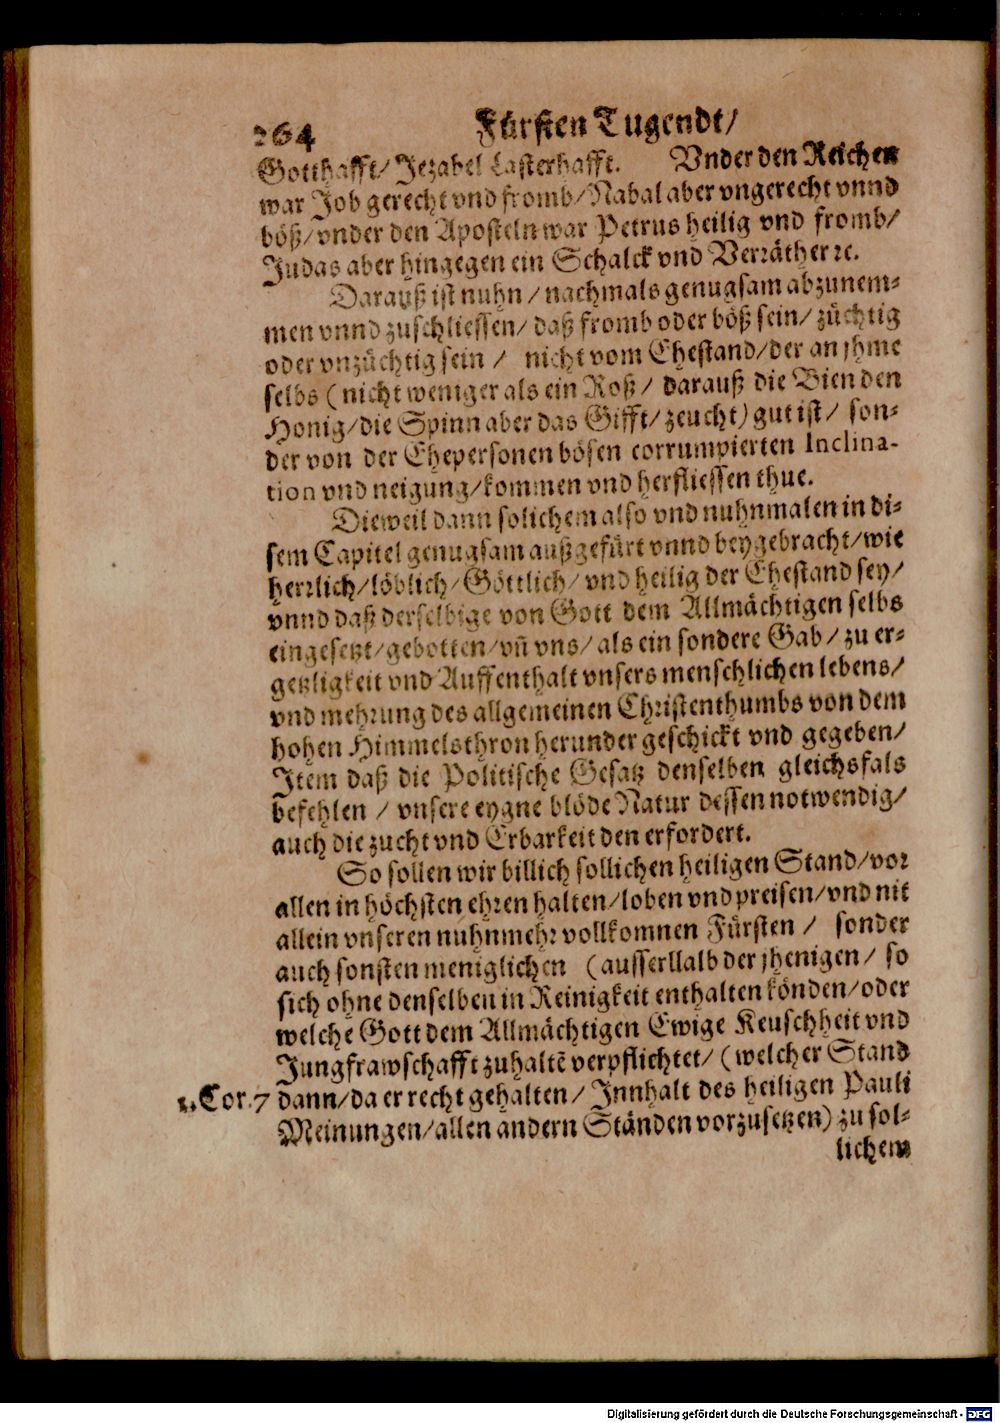 264 Fürsten Tugendt/
Gotthafft/ Jezabel Lasterhafft. Vnder den Reichen
war Job gerecht vnd fromb/ Nabal aber vngerecht vnnd
böß/ vnder den Aposteln war Petrus heilig vnd fromb/
Judas aber hingegen ein Schalck vnd Verräther ꝛc.
Darauß ist nuhn / nachmals genugsam abzunem-
men vnnd zuschliessen/ daß fromb oder böß sein/ züchtig
oder vnzüchtig sein / nicht vom Ehestand/ der an jhme
selbs (nicht weniger als ein Roß / darauß die Bien den
Honig/ die Spinn aber das Gifft/ zeucht) gut ist / son-
der von der Ehepersonen bösen corrumpierten Inclina-
tion vnd neigung/ kommen vnd herfliessen thue.
Dieweil dann solichem also vnd nuhnmalen in di-
sem Capitel genugsam außgefürt vnnd beygebracht/ wie
herrlich/ löblich/ Göttlich/ vnd heilig der Ehestand sey/
vnnd daß derselbige von Gott dem Allmächtigen selbs
eingesetzt/ gebotten/ vñ vns/ als ein sondere Gab/ zu er-
getzligkeit vnd Auffenthalt vnsers menschlichen lebens/
vnd mehrung des allgemeinen Christenthumbs von dem
hohen Himmelsthron herunder geschickt vnd gegeben/
Item daß die Politische Gesatz denselben gleichsfals
befehlen / vnsere eygne blöde Natur dessen notwendig/
auch die zucht vnd Erbarkeit den erfordert.
So sollen wir billich sollichen heiligen Stand/ vor
allen in höchsten ehren halten/ loben vnd preisen/ vnd nit
allein vnseren nuhnmehr vollkomnen Fürsten / sonder
auch sonsten meniglichen (ausserllalb der jhenigen/ so
sich ohne denselben in Reinigkeit enthalten könden/ oder
welche Gott dem Allmächtigen Ewige Keuschheit vnd
Jungfrawschafft zuhaltẽ verpflichtet/ (welcher Stand
1. Cor. 7 dann/ da er recht gehalten/ Innhalt des heiligen Pauli
Meinungen/ allen andern Ständen vorzusetzen) zu sol-
lichem
Digitalisierung gefördert durch die Deutsche Forschungsgemeinschaft - DFG